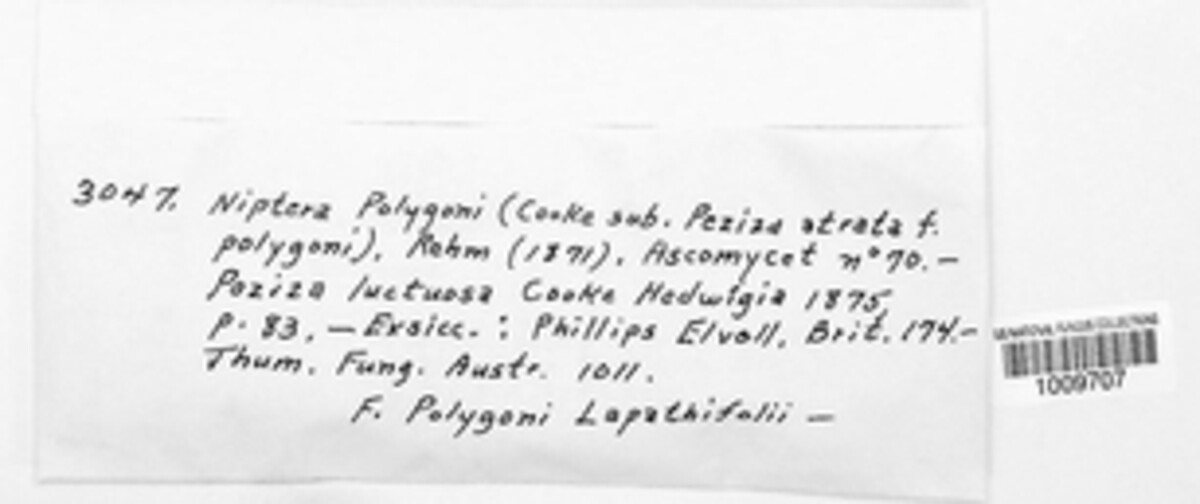 3047. Niptera Polygoni (Cooke sub. Peziza atrata f.
polygoni), Rehm (1871). Ascomycet nº 70. —
Peziza luctuosa Cooke Hedwigia 1875,
p. 83. — Exsicc. : Phillips Elvell. Brit. 174. —
Thum. Fung. Austr. 1011.
F. Polygoni Lapathifolii —
1009707